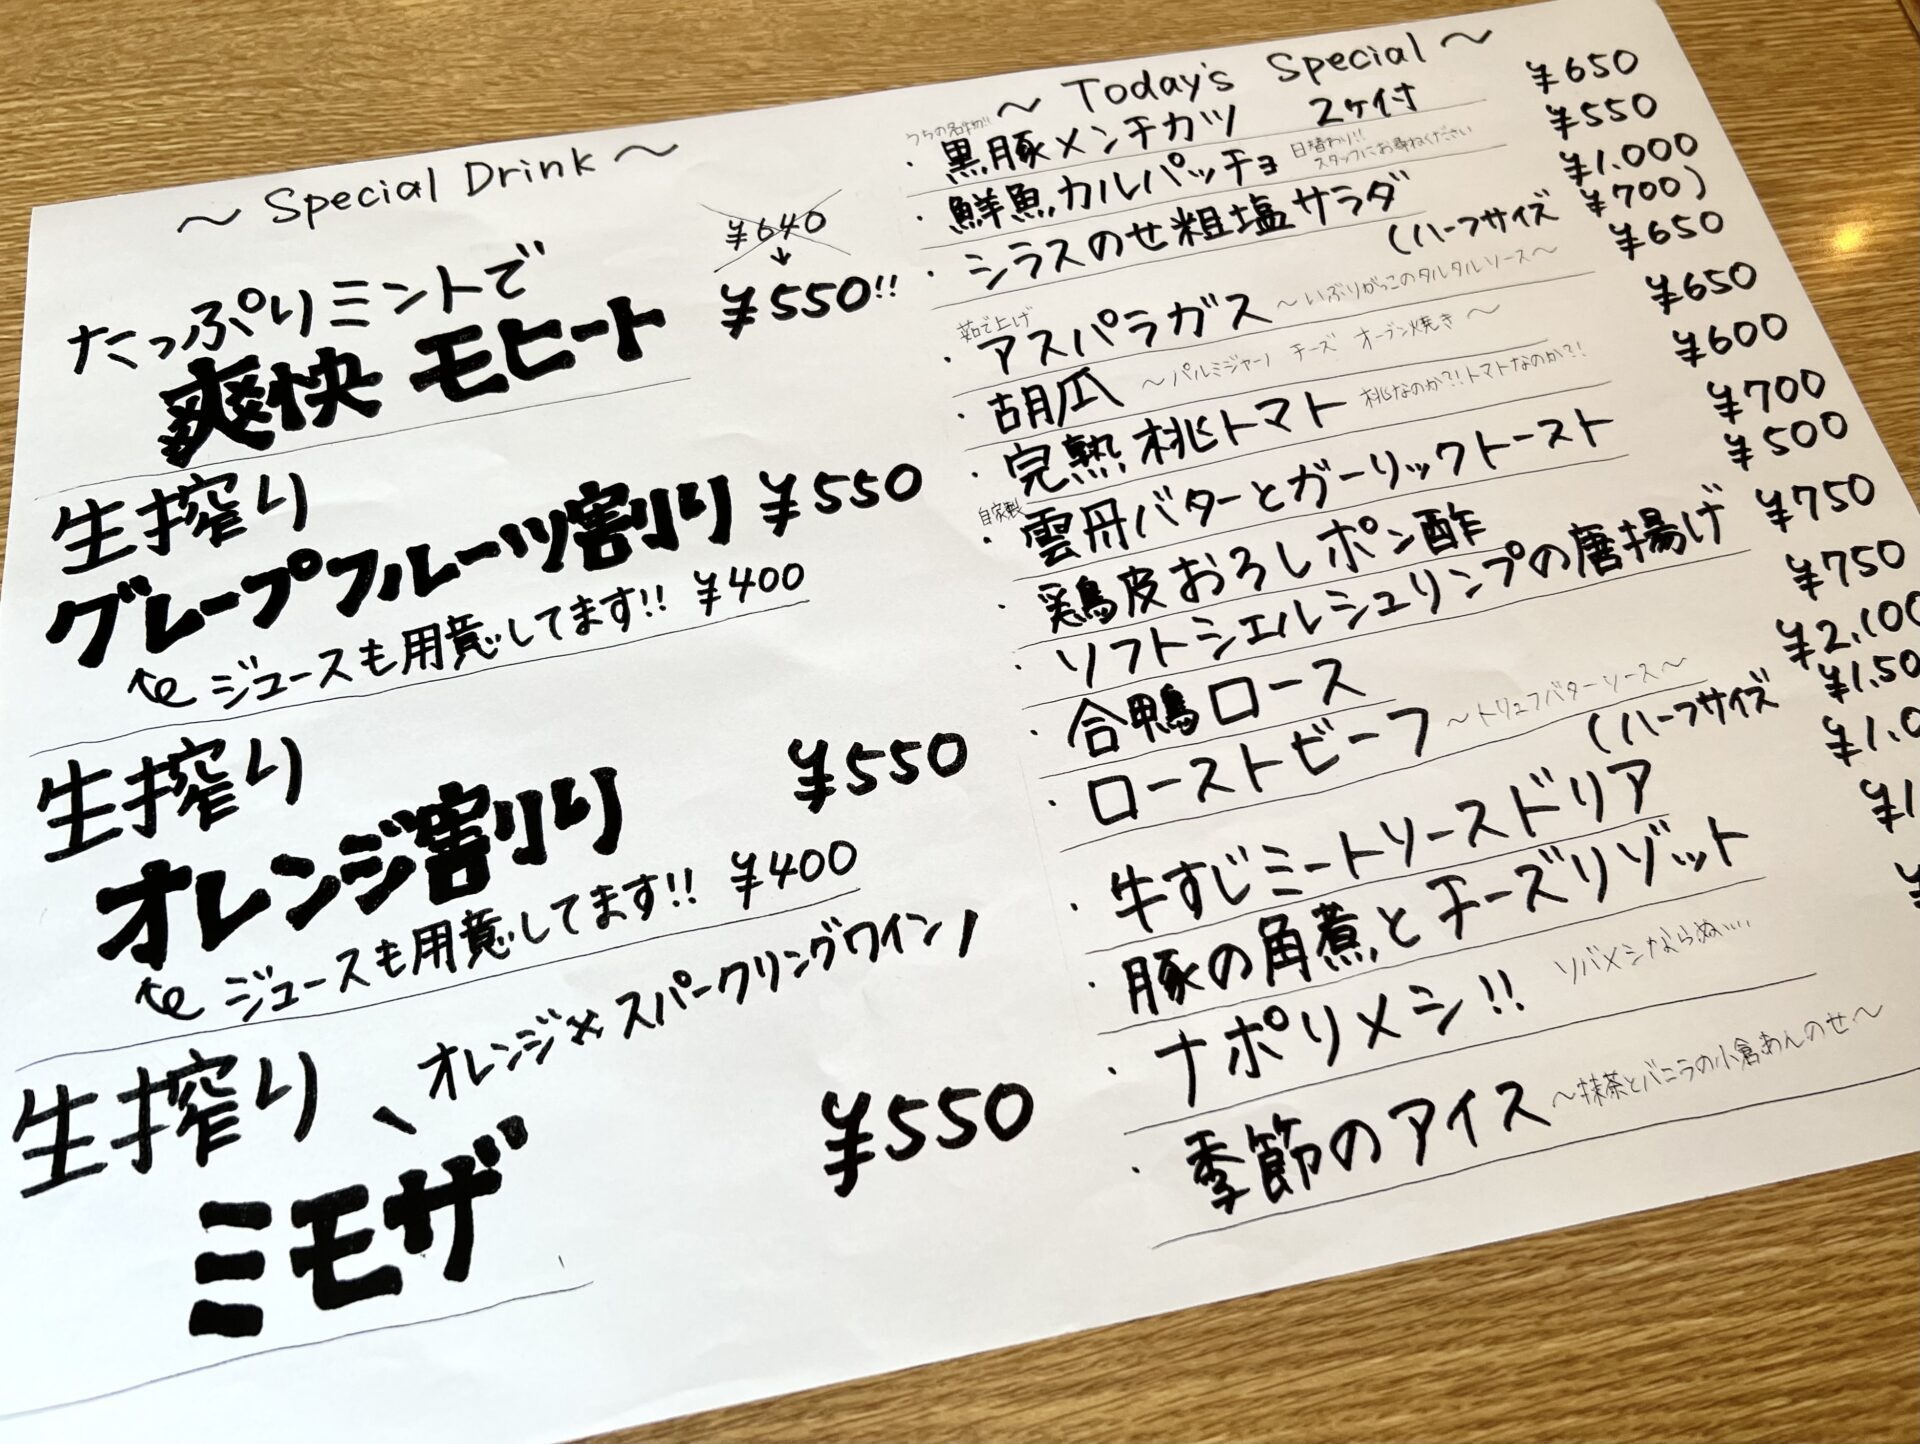 ～ Special Drink ～
たっぷりミントで
爽快 モヒート
¥640
↓
¥550!!
生搾り
グレープフルーツ割り ¥550
ジュースも用意してます!! ¥400
生搾り
オレンジ割り ¥550
ジュースも用意してます!! ¥400
生搾り
オレンジ×スパークリングワイン
ミモザ ¥550
～ Today's Special ～
うちの名物!!
・黒豚メンチカツ 2ケ付 ¥650
・鮮魚カルパッチョ 日替わり!! スタッフにお尋ねください ¥550
・シラスのせ粗塩サラダ ¥1.000
(ハーフサイズ ¥700)
茹で上げ
・アスパラガス ～いぶりがっこのタルタルソース～ ¥650
・胡瓜 ～パルミジャーノ チーズ オーブン焼き～ ¥650
・完熟桃トマト 桃なのか?!トマトなのか?! ¥600
自家製
・雲丹バターとガーリックトースト ¥700
・鶏皮おろしポン酢 ¥500
・ソフトシェルシュリンプの唐揚げ ¥750
・合鴨ロース ¥750
・ローストビーフ ～トリュフバターソース～ ¥2.100
(ハーフサイズ ¥1.50
・牛すじミートソースドリア ¥1.0
・豚の角煮とチーズリゾット ¥1
・ナポリメシ!! ソバメシならぬ…. ¥
・季節のアイス ～抹茶とバニラの小倉あんのせ～